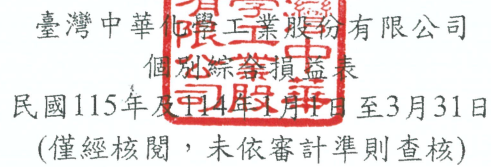 臺灣中華化學工業股份有限公司
個別綜合損益表
民國115年及114年1月1日至3月31日
(僅經核閱，未依審計準則查核)